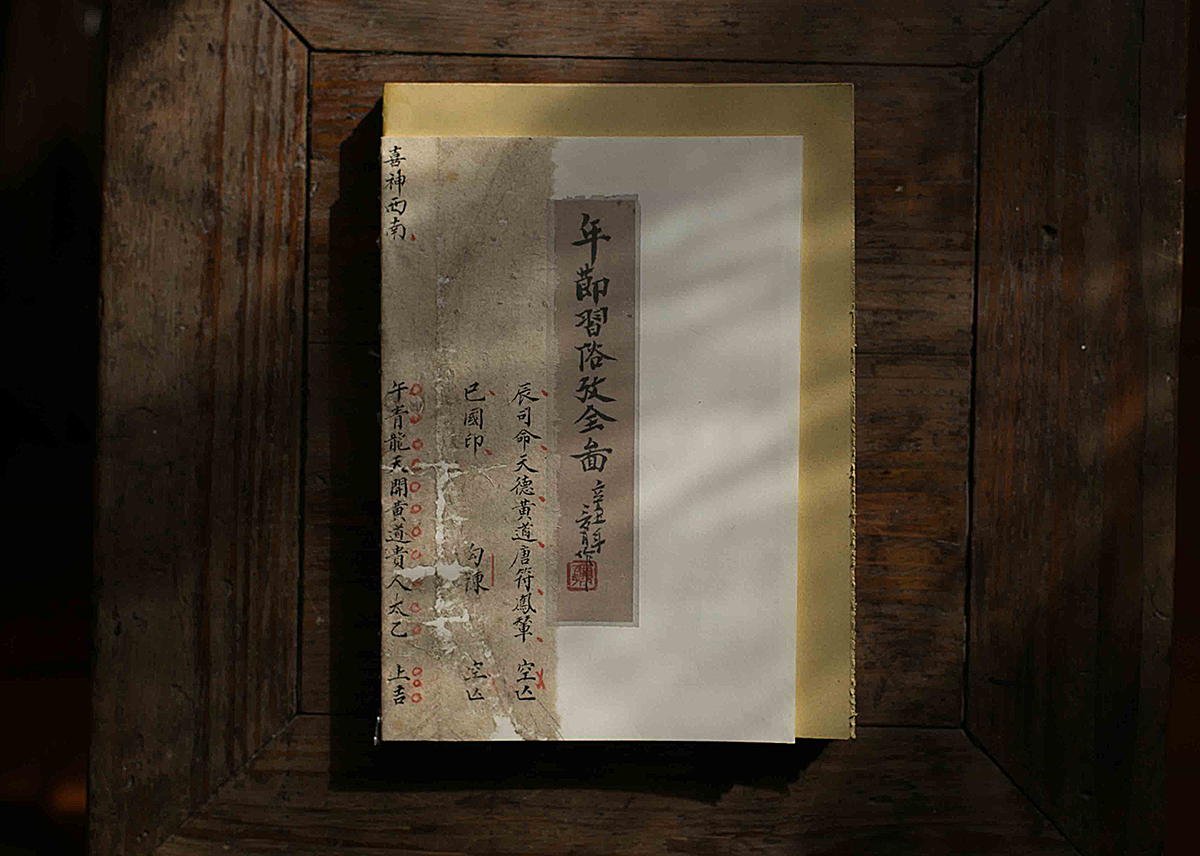 年莭習俗攷全啚
辰司命天德黃道唐符鳳輦 空亡
巳國印 勾陳 空亡
喜神西南 午青龍天開黃道貴人太乙 上吉